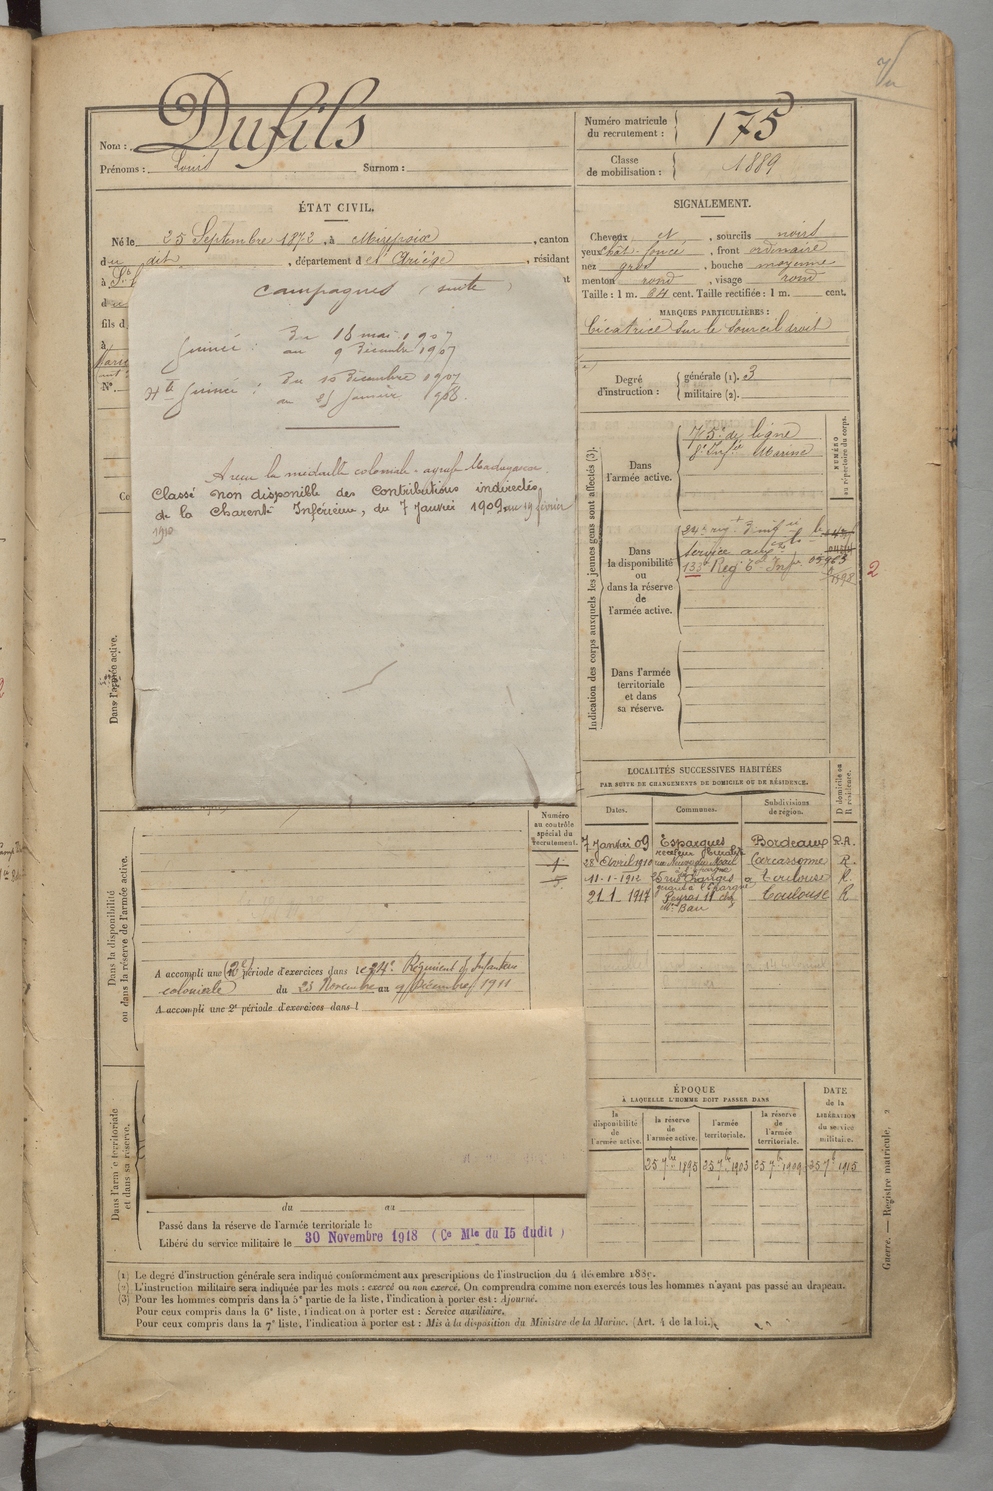 Nom : Dufils
Prénoms : Louis Surnom :
Numéro matricule du recrutement : 175
Classe de mobilisation : 1889
ÉTAT CIVIL.
Né le 25 Septembre 1872, à Mirepoix, canton
du dit, département de l'Ariège, résidant
à St
fils d
à
N°
campagnes (suite)
Guinée : du 18 mai 1907
au 9 Décembre 1907
Hte Guinée : du 10 Décembre 1907
au 25 Janvier 1908.
A reçu la médaille coloniale - agrafe Madagascar.
Classé non disponible des Contributions indirectes
de la Charente Inférieure, du 7 Janvier 1909 au 19 février
1910
SIGNALEMENT.
Cheveux et, sourcils noirs
yeux chât. foncé, front ordinaire
nez gros, bouche moyenne
menton rond, visage rond
Taille : 1 m. 64 cent. Taille rectifiée : 1 m. cent.
MARQUES PARTICULIÈRES :
Cicatrice sur le sourcil droit
Degré d'instruction : générale (1). 3
militaire (2).
Indication des corps auxquels les jeunes gens sont affectés (3).
NUMÉRO au répertoire du corps.
Dans l'armée active.
de ligne
8e Infie Marine
Dans la disponibilité ou dans la réserve de l'armée active.
24e regt d'infie
Service aux
133e Reg. Inf.
2
Dans l'armée territoriale et dans sa réserve.
LOCALITÉS SUCCESSIVES HABITÉES
PAR SUITE DE CHANGEMENTS DE DOMICILE OU DE RÉSIDENCE.
Dates. Communes. Subdivisions de région. D domicile ou R résidence.
7 Janvier 09 Espargnes Bordeaux R.A.
receveur
28 Avril 1910 Carcassonne R.
11-1-1912 Toulouse R.
21-1-1917 Peyras 11 Toulouse R
Dans l'armée active.
Numéro au contrôle spécial du recrutement.
1
5
Dans la disponibilité ou dans la réserve de l'armée active.
A accompli une (2e) période d'exercices dans le 24e Régiment d'Infanterie
coloniale du 23 Novembre au 9 Décembre 1911
A accompli une 2e période d'exercices dans l
ÉPOQUE
À LAQUELLE L'HOMME DOIT PASSER DANS
la disponibilité de l'armée active. la réserve de l'armée active. l'armée territoriale. la réserve de l'armée territoriale.
DATE de la LIBÉRATION du service militaire.
25 7bre 1895 25 7bre 1903 25 7bre 1909 25 7bre 1915
Dans l'armée territoriale et dans sa réserve.
du au
Passé dans la réserve de l'armée territoriale le
Libéré du service militaire le 30 Novembre 1918 (Ce Mle du 15 dudit)
(1) Le degré d'instruction générale sera indiqué conformément aux prescriptions de l'instruction du 4 décembre 1889.
(2) L'instruction militaire sera indiquée par les mots : exercé ou non exercé. On comprendra comme non exercés tous les hommes n'ayant pas passé au drapeau.
(3) Pour les hommes compris dans la 5e partie de la liste, l'indication à porter est : Ajourné.
Pour ceux compris dans la 6e liste, l'indication à porter est : Service auxiliaire.
Pour ceux compris dans la 7e liste, l'indication à porter est : Mis à la disposition du Ministre de la Marine. (Art. 4 de la loi.)
Guerre. — Registre matricule.